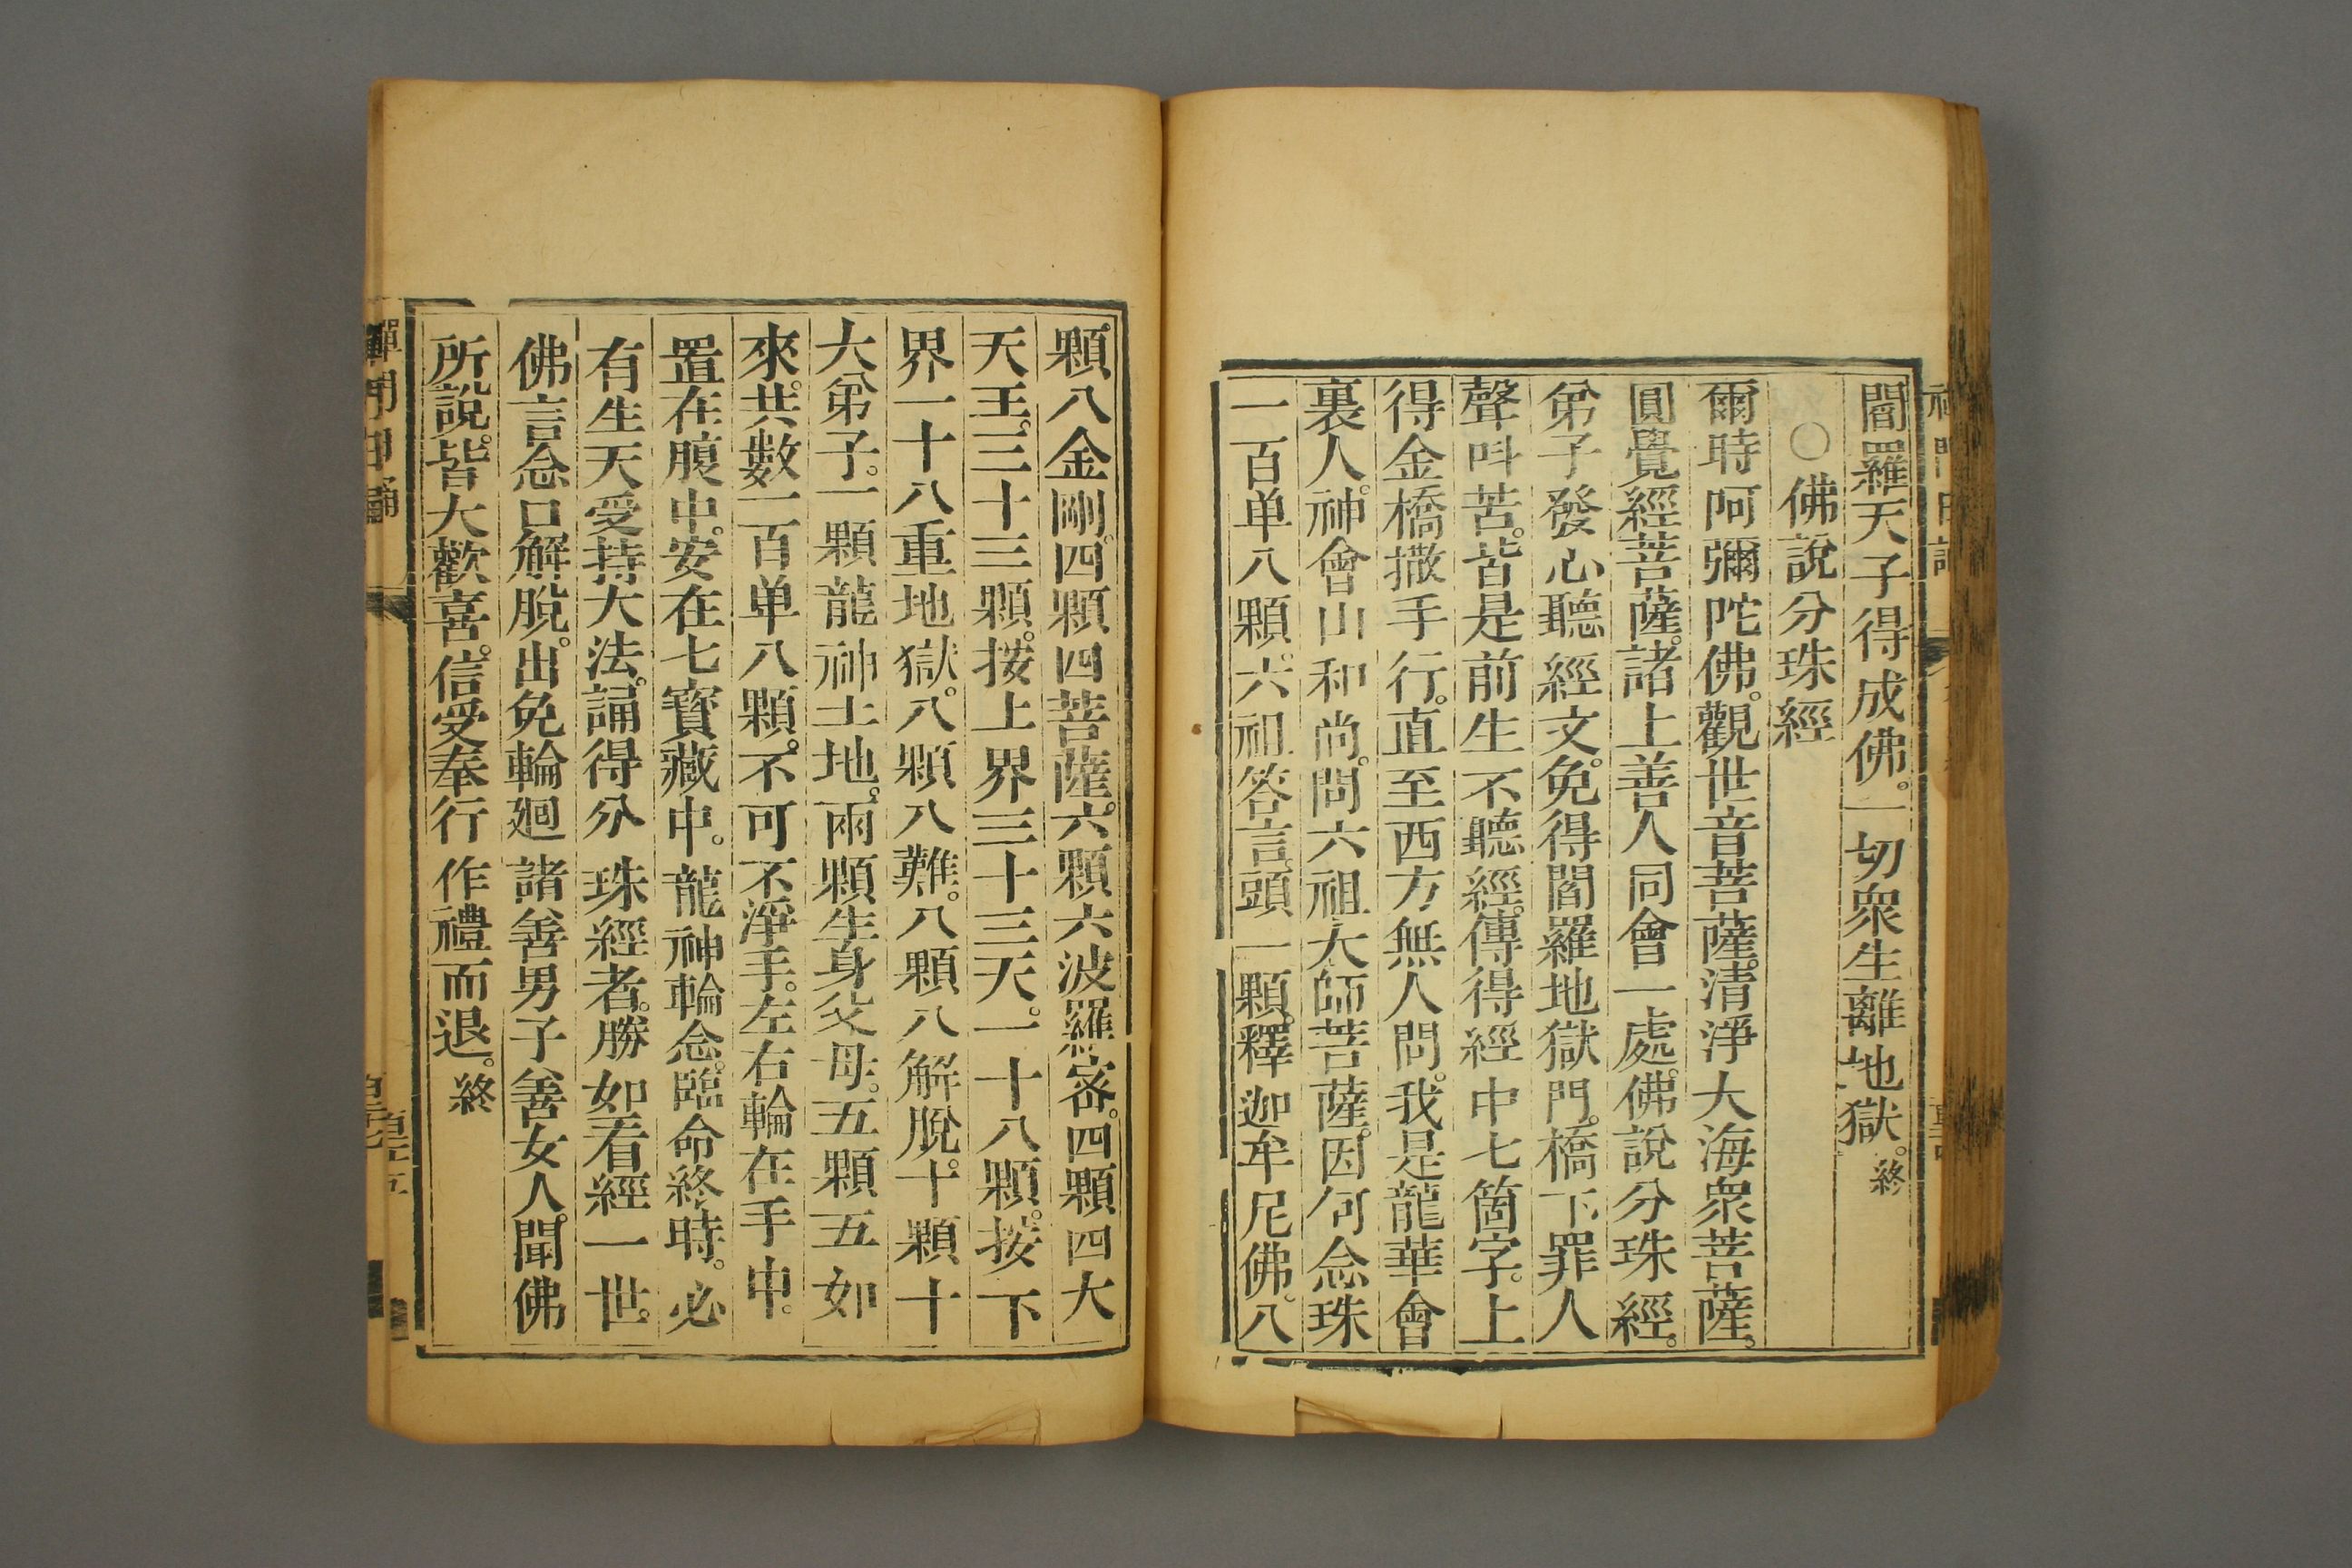 閻羅天子得成佛。一切衆生離地獄。終
○佛說分珠經
爾時阿彌陀佛。觀世音菩薩。清淨大海衆菩薩。
圓覺經菩薩。諸上善人同會一處。佛說分珠經。
弟子發心聽經文。免得閻羅地獄門。橋下罪人
聲呌苦。皆是前生不聽經。傳得經中七箇字。上
得金橋撒手行。直至西方無人問。我是龍華會
裏人。神會山和尚。問六祖大師菩薩。因何念珠
一百单八顆。六祖答言。頭一顆。釋迦牟尼佛。八
顆八金剛。四顆四菩薩。六顆六波羅密。四顆四大
天王。三十三顆。按上界三十三天。一十八顆。按下
界一十八重地獄。八顆八難。八顆八解脫。十顆十
大弟子。一顆龍神土地。兩顆生身父母。五顆五如
來。共數一百单八顆。不可不淨手。左右輪在手中。
置在腹中。安在七寶藏中。龍神輪念。臨命終時。必
有生天受持大法。誦得分珠經者。勝如看經一世。
佛言念口解脫。出免輪廻諸善男子善女人。聞佛
所說。皆大歡喜。信受奉行作禮而退。終
禪門日誦